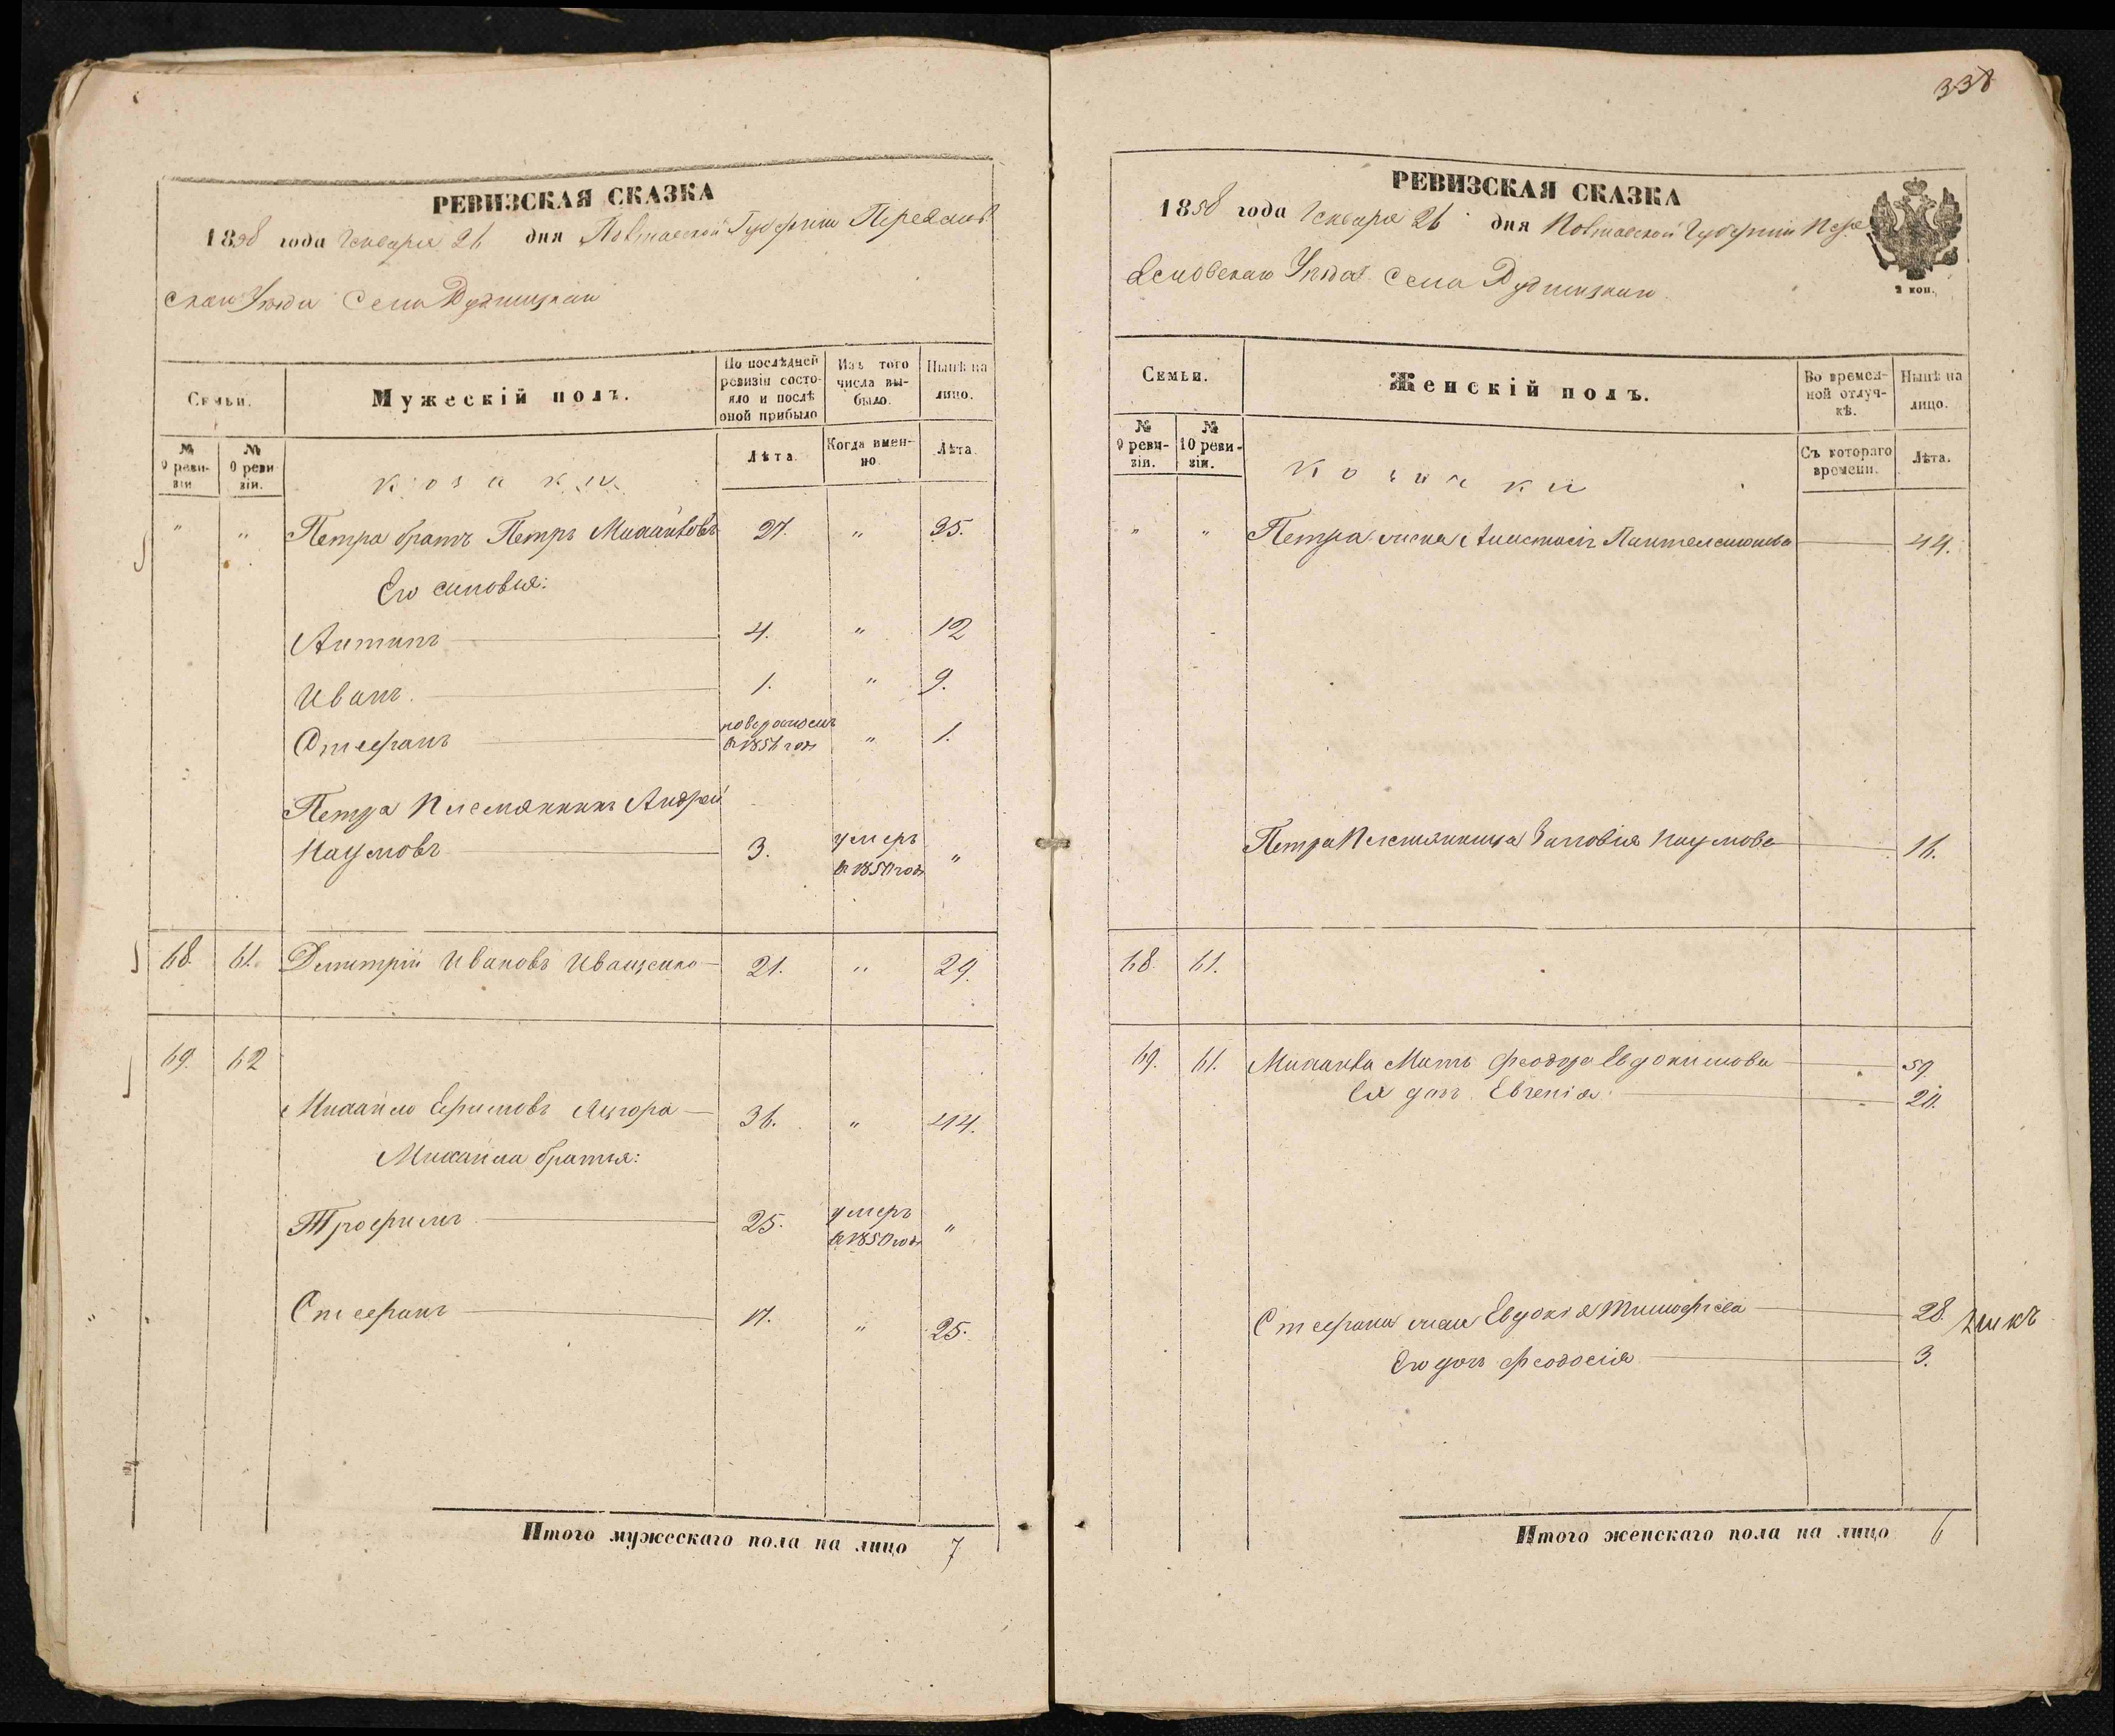 РЕВИЗСКАЯ СКАЗКА
1858 года Генваря 26 дня Полтавской Губерніи Переяслов
скаго Уѣзда Села
Семьи.
Мужескій полъ.
По послѣдней ревизіи состояло и послѣ оной прибыло
Изъ того числа выбыло.
Нынѣ на лицо.
№ 9 ревизіи
№ 0 ревизіи.
козаки
Лѣта.
Когда именно.
Лѣта.
" " Петра братъ Петръ Михайловъ 27. " 35.
Его сыновья:
Антипъ 4. " 12
Иванъ. 1. " 9.
Стефанъ новорожденъ в 1856 годѣ " 1.
Петра Племянникъ Андрей
Наумовъ 3. умеръ в 1850 годѣ "
68. 61. Димитрій Ивановъ Иващенко 21. " 29.
69. 62
Михайло Ефимовъ 36. " 44.
Михайла братья:
Трофимъ 25. умеръ в 1850 годѣ "
Стефанъ 17. " 25.
Итого мужескаго пола на лицо 7
338
РЕВИЗСКАЯ СКАЗКА
1858 года Генваря 26 дня Полтавской Губерніи Пере
яславскаго Уѣзда Села
2 коп.
Семьи.
Женскій полъ.
Во временной отлучкѣ.
Нынѣ на лицо.
№ 9 ревизіи.
№ 10 ревизіи.
козачки
Съ котораго времени.
Лѣта.
" " Петра жена Анастасія Пантелеимонова 44.
Петра Племянница Зиновія Наумова 16.
68. 61.
69. 61. Михайла Мать Феодора Евдокимова 59.
Ея дочь Евгенія. 20.
Стефана жена Евдокія Тимофѣева 28.
Его дочь Феодосія 3.
Итого женскаго пола на лицо 6